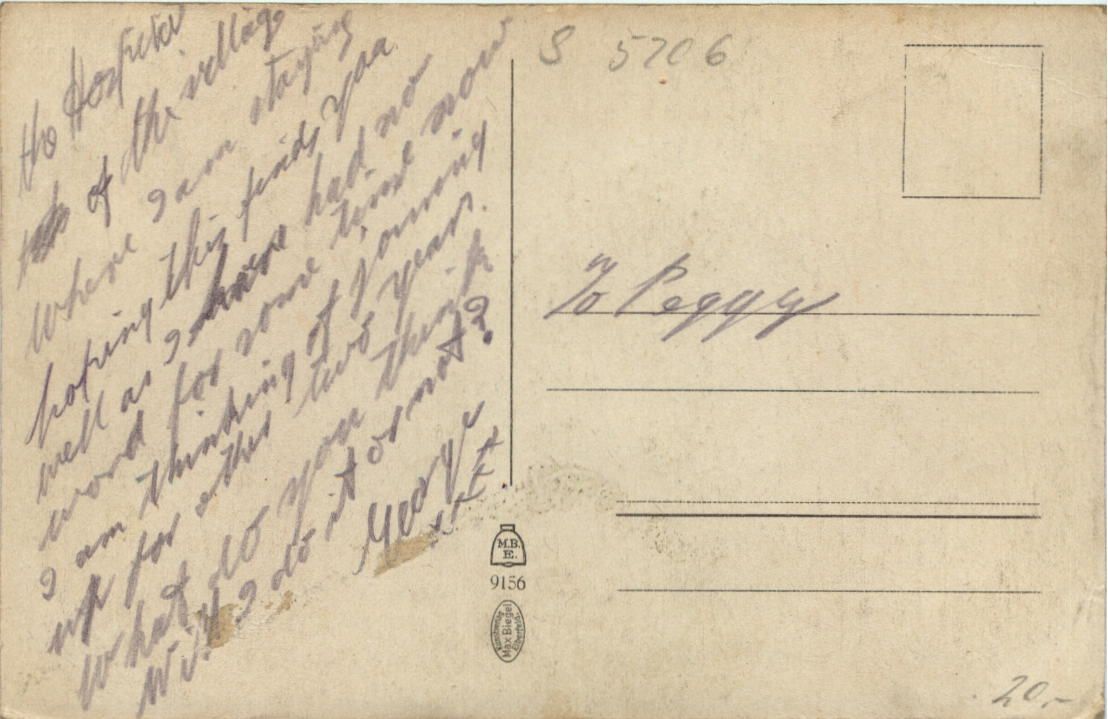 the Hospital
of the village
where I am staying
hoping this finds you
well as I have had no
word for some time now
I am thinking of joining
up for other two years.
What do you think
Will I do it or not?
George
xxxx
S 5706
To Peggy
M.B.
E.
9156
Kunstverlag
Max Biegel
Elberfeld
20,-